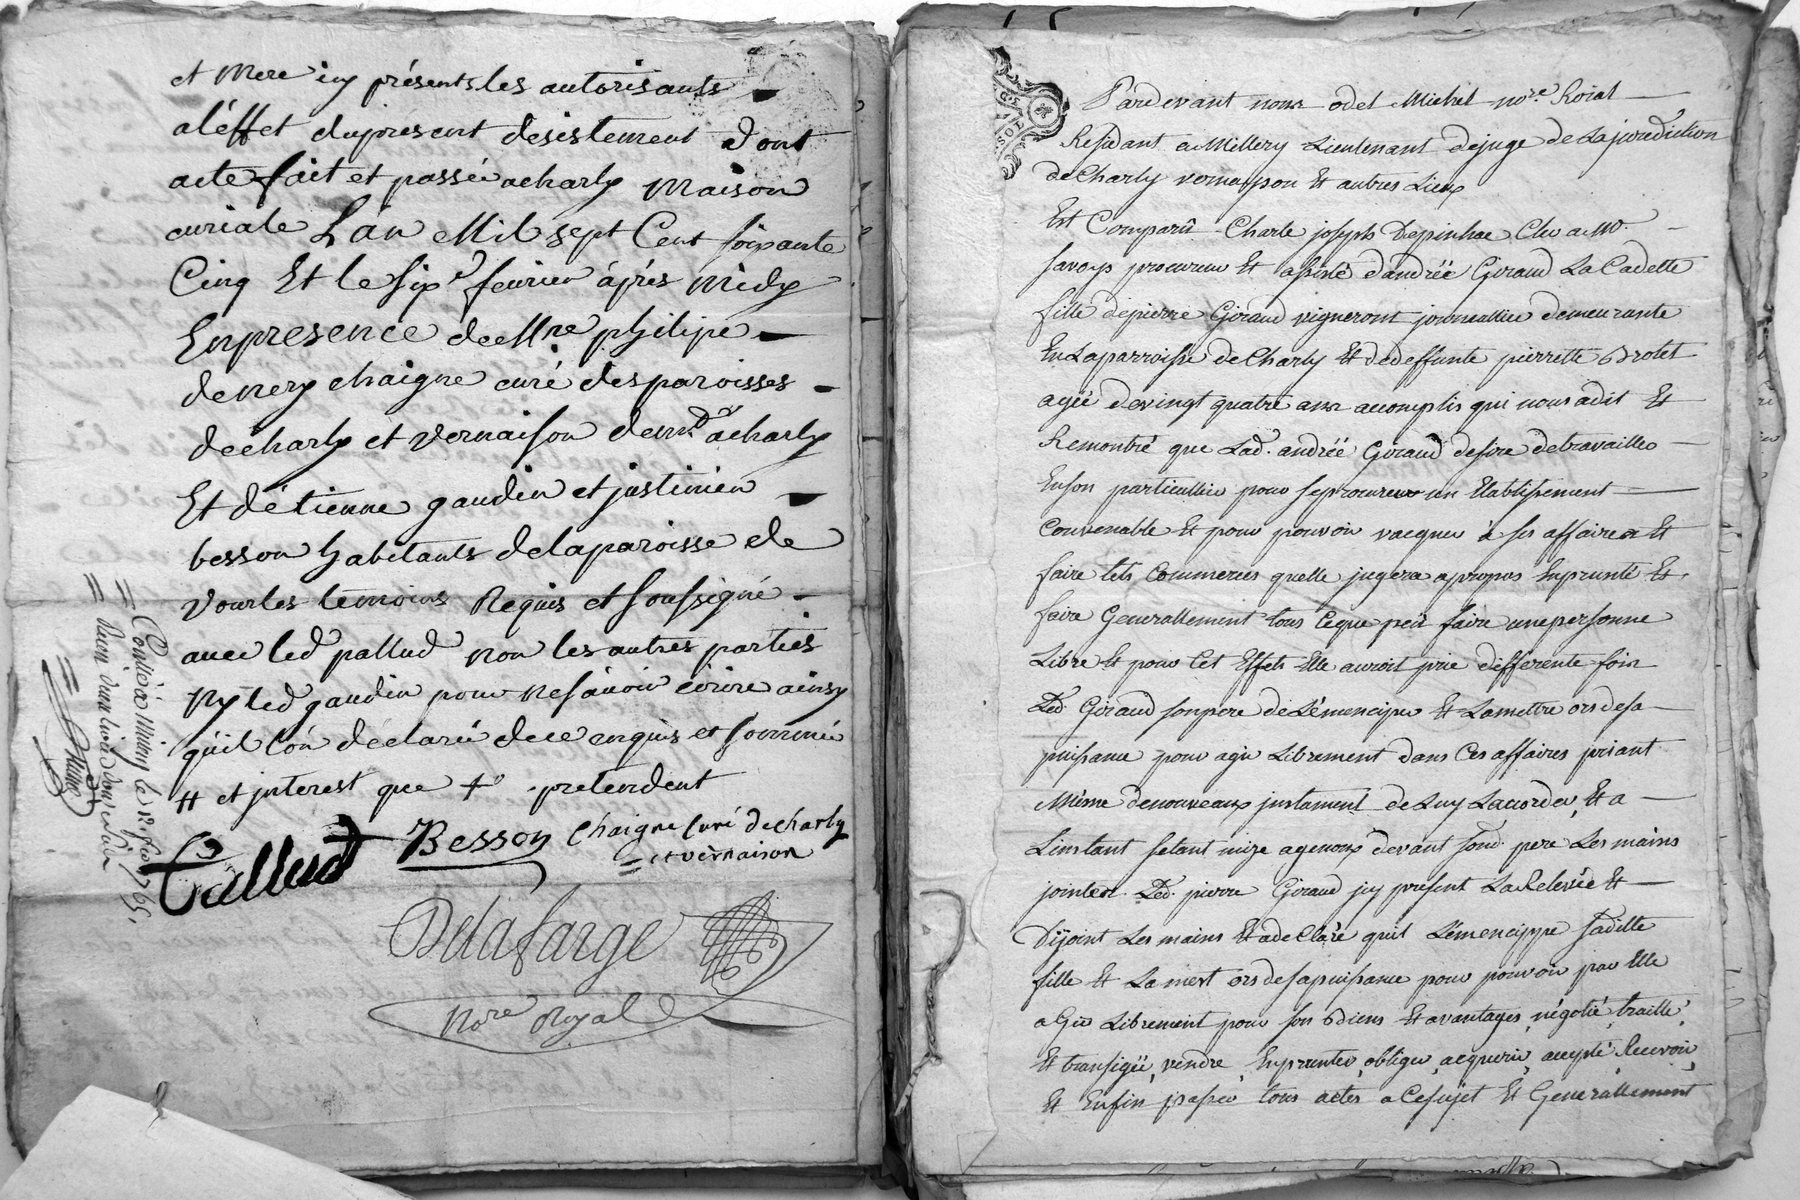 et Mere icy présents les autorisants
a léffet dupresent desistement dont
acte fait et passé a charly Maison
curiale Lán Mil sept Cent soixante
Cinq Et le six e fevrier áprés Midy
En presence de M re philipe
denery chaigne curé des paroisses
de charly et vernaison dem.t a charly
Et détienne gaudin et justinien
besson habitants dela paroisse de
vourles temoins Requis et soussigné
avec led pallud non les autres parties
ny led gaudin pour ne sávoir écrire ainsy
quil lón déclaré de ce enquis et sommé
# et interest que + pretendent
Pallud Besson Chaigne Curé de charly
et vernaison
Delafarge
No re Royal
Controlé a Millery le 12 fev. 1765.
Pardevant nous odet Michel no.re Roial
Residant a Millery Lieutenant dejuge de La jurediction
de Charly vernaison Et autres Lieux
Est Comparû Charle joseph Depinhac
savoys procureur Et assisté dandréé Giraud La Cadette
fille depierre Giraud vigneront journallier demeurante
En La parroisse de Charly Et de deffunte pierrette Brotet
agéé devingt quatre ans accomplis qui nous a dit Et
Remontré que Lad. andréé Giraud desire de travailler
En son particullier pour se procurer un Etablisement
Convenable Et pour pouvoir vacquer à ses affaires Et
faire tels Commerces quelle jugera apropos Enprunté Et
faire Generallement tous ceque peu faire une personne
Libre Et pour Cet Effets Elle auroit prie differente fois
Led. Giraud son pere de Lémenciper Et La mettre ors de sa
puissance pour agir Librement dans Ces affaires priant
Mésme denouveaux justament de Luy Laccorder, Et a
Linstant setant mize agenoux devant sond. pere Les mains
jointes Led. pierre Giraud icy present La Relevéé Et
Dijoint Les mains Et a declaré quil Lémencippe sa ditte
fille Et La mest ors de sa puissance pour pouvoir par Elle
aGir Librement pour ses Biens Et avantages, négotié, traitté,
Et transigér, vendre, Enprunter, obliger, acquerir, accepté, Recevoir,
Et Enfin passer tous actes a Cesujet Et Generallement